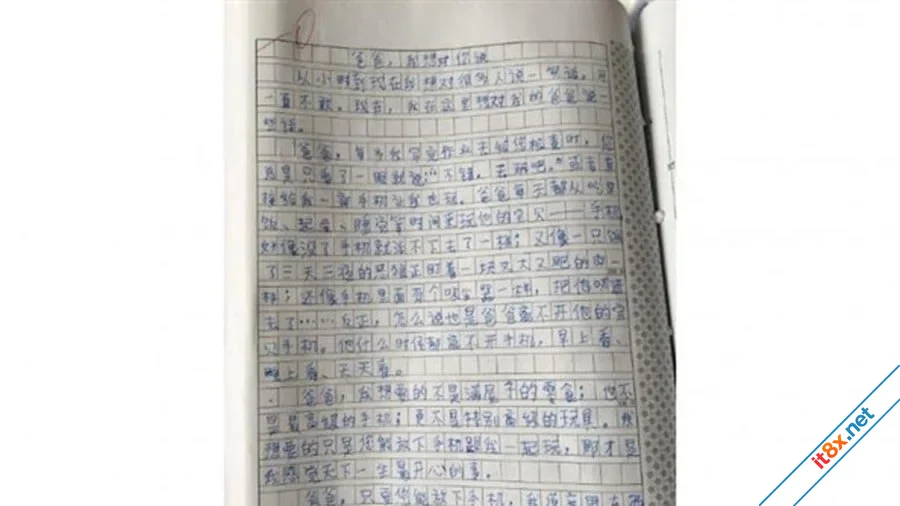 爸爸，我想对你说
从小时到现在我想对很多人说一句话，可
一直不敢。现在，我在这里想对我的爸爸说一
些话。
爸爸，每次我写完作业去给你检查时，您
总是只看了一眼就说：“不错，去玩吧。”或者直
接给我一部手机让我也玩。爸爸每天都从吃
饭、起床、睡觉等时间来玩他的宝贝——手机
好像没了手机就活不下去了一样；又像一只饿
了三天三夜的恶狼正盯着一块又大又肥的肉一
样；还像手机里面有个吸尘器一样，把你吸进
去了……反正，怎么说也是爸爸离不开他的宝
贝手机。他什么时候都离不开手机，早上看、
晚上看、天天看。
爸爸，我想要的不是满屋子的零食；也不
是最高级的手机；更不是特别高级的玩具。我
想要的只是您能放下手机跟我一起玩，那才是
我感觉天下一生最开心的事。
爸爸，只要你能放下手机，我
it8x.net